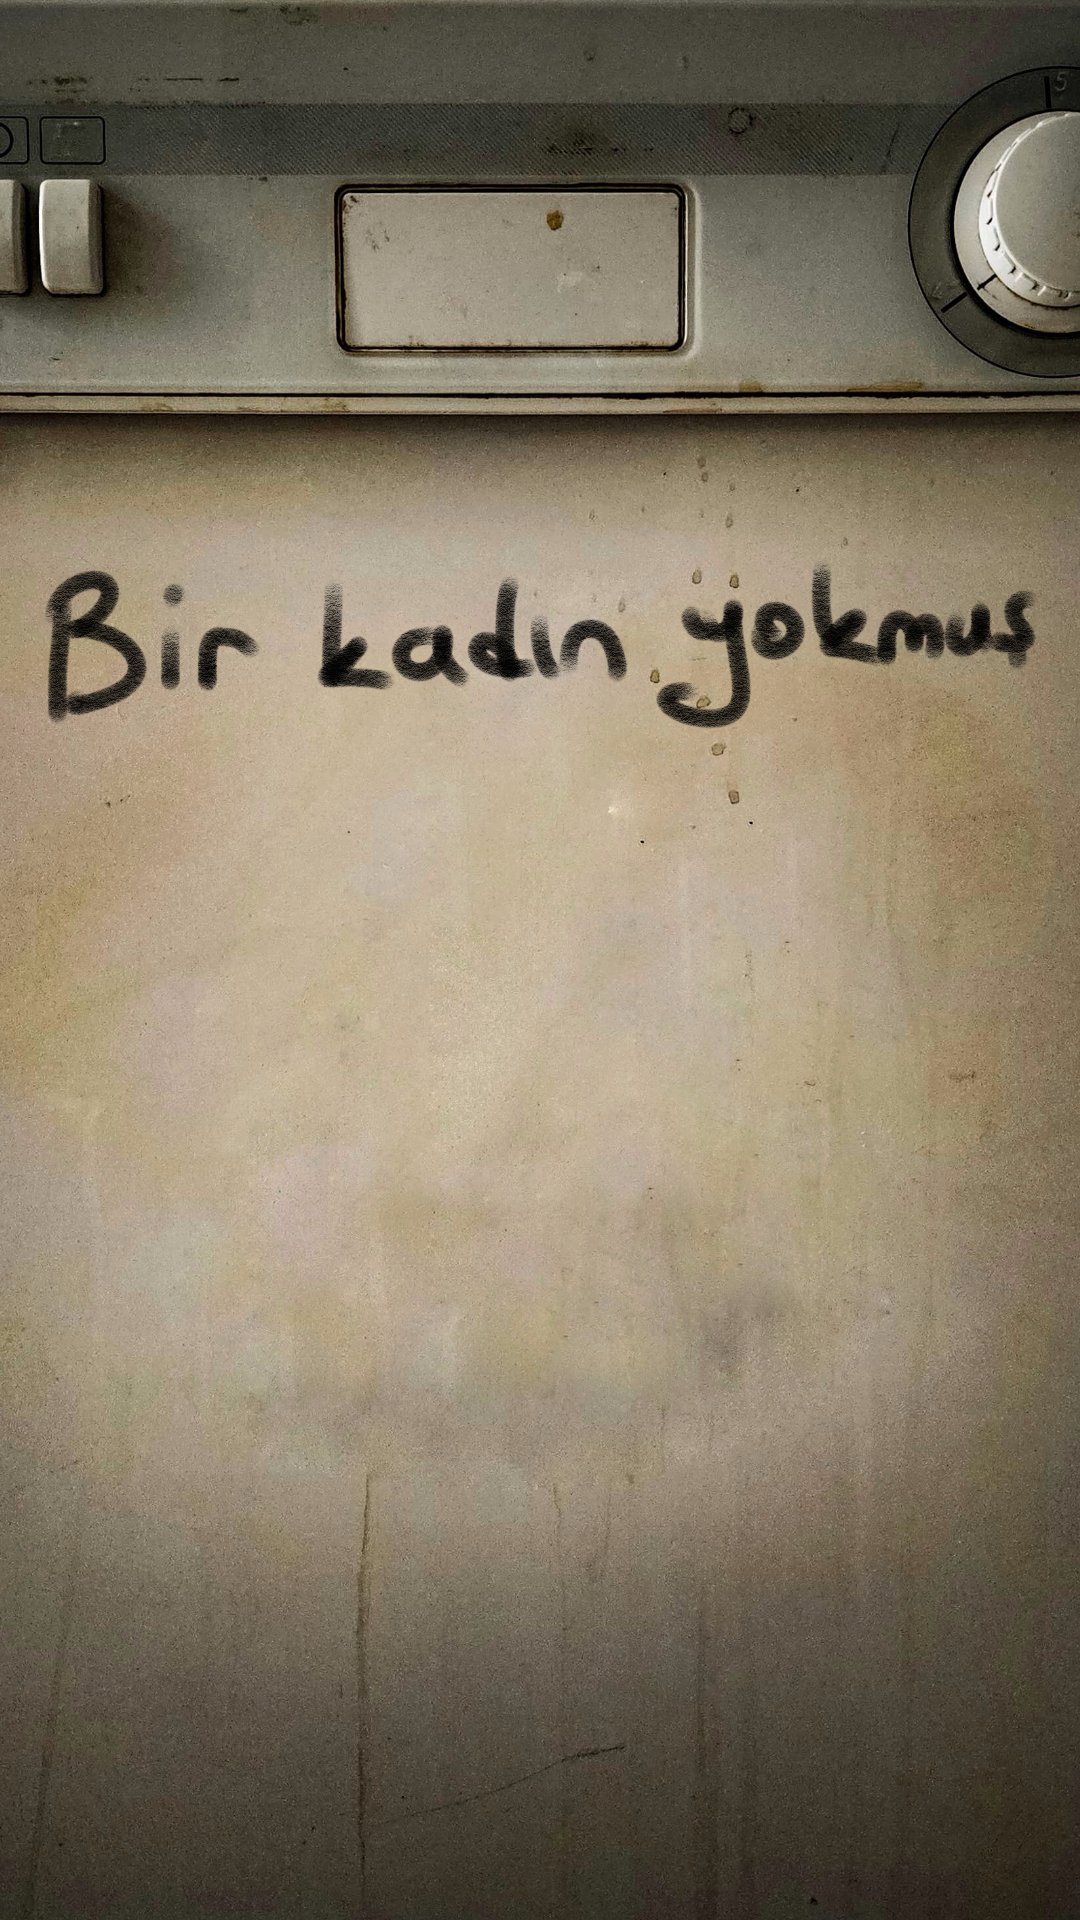 Bir kadın yokmuş
5